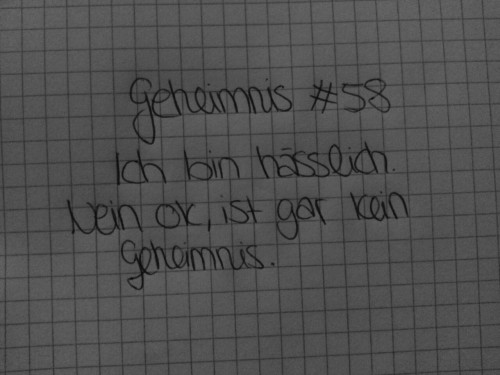 Geheimnis #58
Ich bin hässlich.
Nein ok, ist gar kein
Geheimnis.